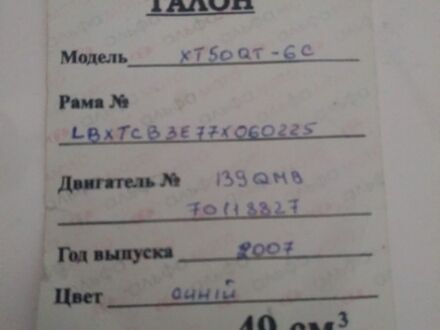 ТАЛОН
Модель XT50QT-6C
Рама №
LBXTCB3E77X060225
Двигатель № 139QMB
70118827
Год выпуска 2007
Цвет синій
49 см³